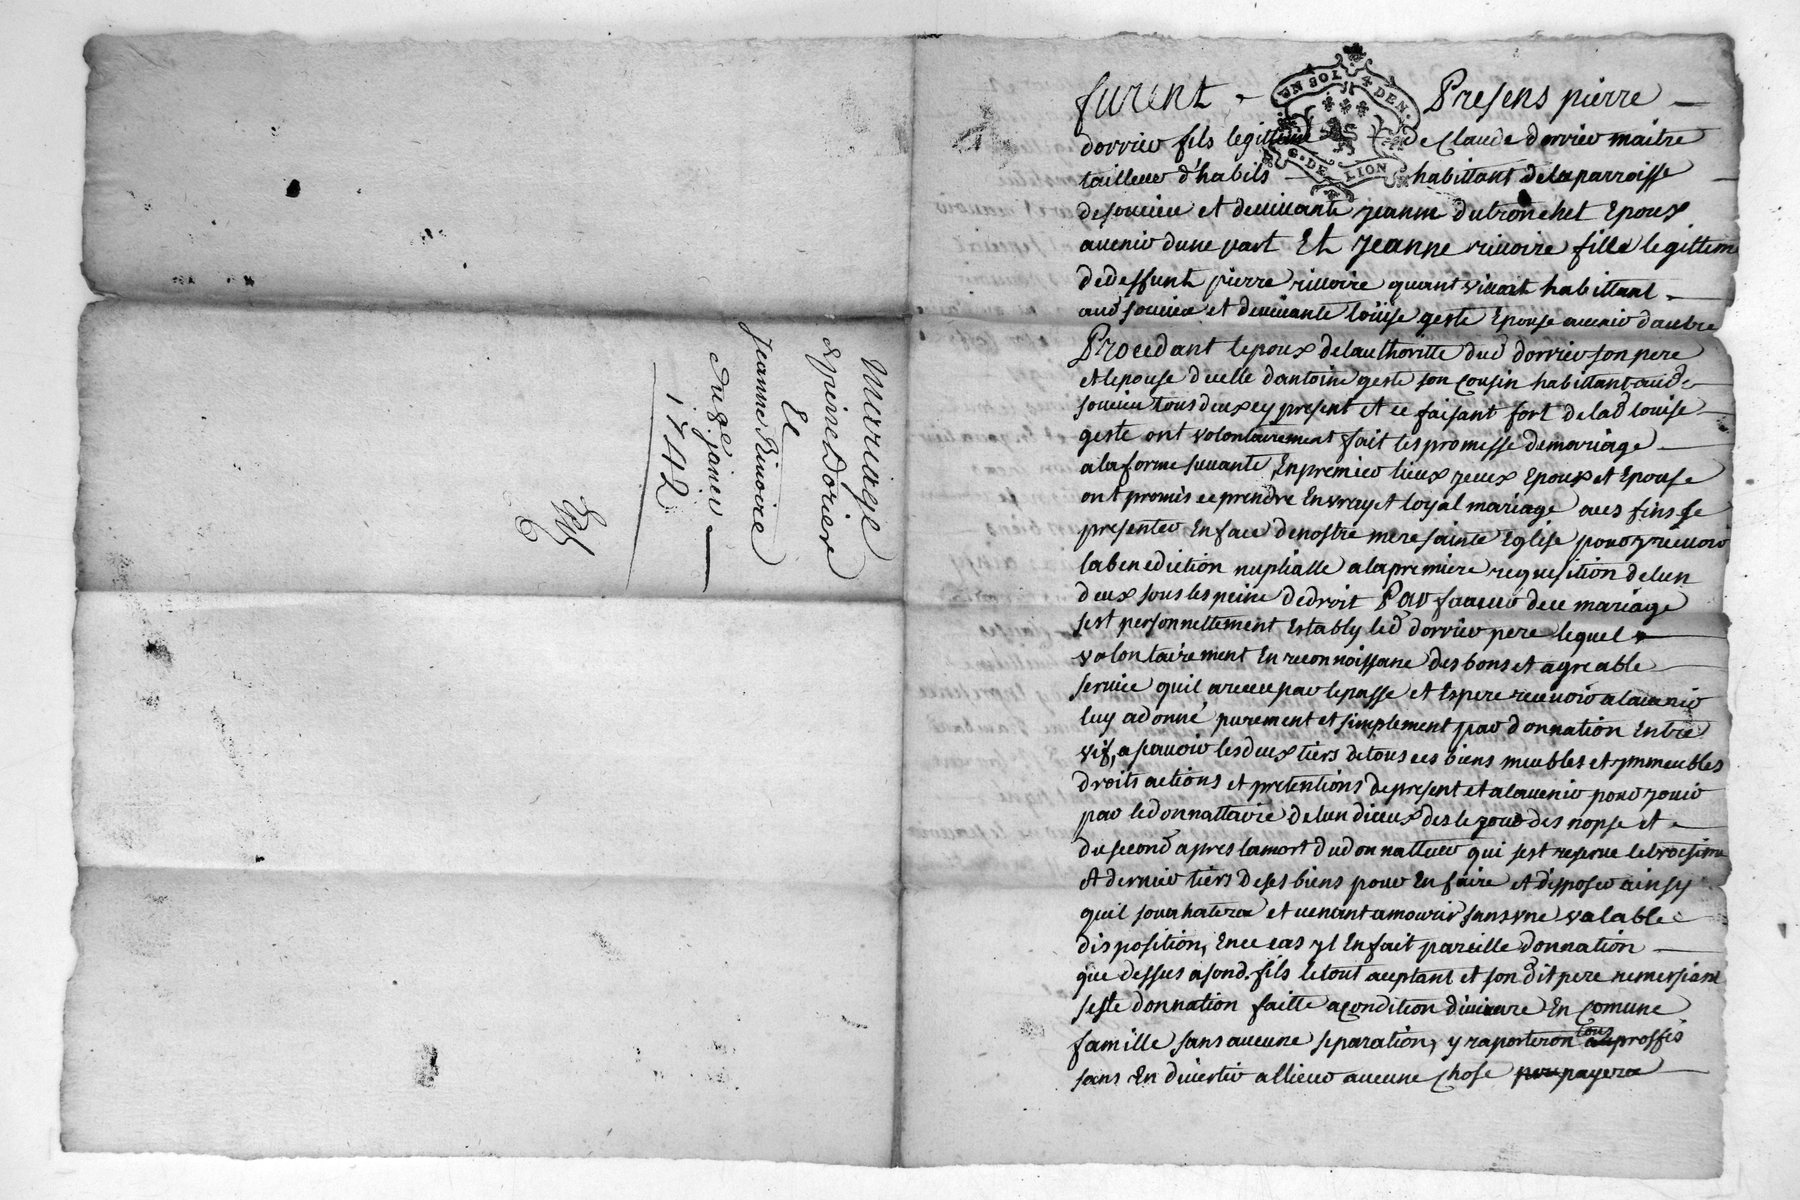 Mariage
de pierre Dorier
Et
Jeanne Rivoire
du 8e janvier
1742
UN SOL 4 DEN.
G. DE LION
furent Presens pierre
dorrier fils legitteme de Claude dorrier maitre
tailleur d'habils habittant de la parroisse
de soucieu et de vivante jeanne dutronchet Epoux
avenir dune part Et Jeanne rivoire fille legitteme
de deffunt pierre rivoire quant vivoit habittant
aud soucieu et de vivante loüise geste Epouse avenir dautre
Procedant lepoux de lauthoritte dud dorrier son pere
et lepouse dicelle dantoine geste son Cousin habittant aud
soucieu tous deux cy present et ce faisant fort de lad louise
geste ont volontairement fait les promesse de mariage
a la forme suivante En premier lieux yceux Epoux et Epouse
ont promis ce prendre En vray et loyal mariage aues fins se
presenter En face de nostre mere sainte Eglise pour y recevoir
la benediction nuptialle a la premiere requisition de lun
deux sous les peine de droit Par faveur de ce mariage
sest personnellement Estably led dorrier pere lequel
volontairement En reconnoissane des bons et agreable
service quil a receu par le passe et Espere recevoir a lavenir
luy a donné purement et simplement par donnation Entre
vif, a scavoir les deux tiers de tous ces biens meubles et ymmeubles
droits actions et pretentions de present et a lavenir pour jouir
par le donnattaire de lun diceux des le jour des nopse et
du second apres la mort du donnatteur qui sest reserve le troisieme
et dernier tiers de ses biens pour En faire et disposer ainsy
quil souhatera et venant a mourir sans une valable
disposition, En ce cas yl En fait pareille donnation
que dessus a sond. fils le tout aceptant et son dit pere remersiant
seste donnation faitte a condition de vivre En Comune
famille sans aucune separation, y raporteron tous proffis
sans En divertir allieur aucune Chose payera